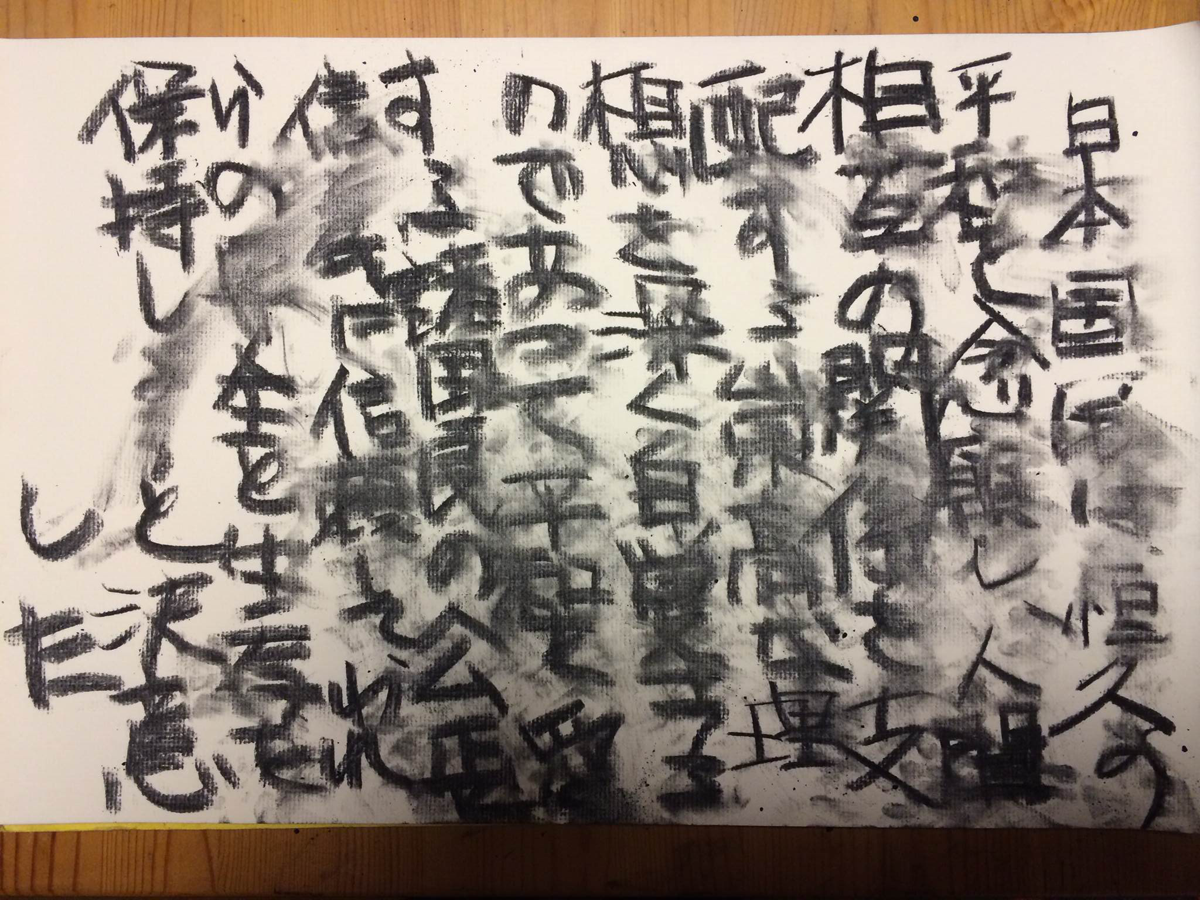 日本国民は恒久の
平和を念願し人間
相互の関係を支
配する崇高な理
想を深く自覚する
のであって平和を愛
する諸国民の公正
信義に信頼してわれ
らの安全と生存を
保持しと決意
した